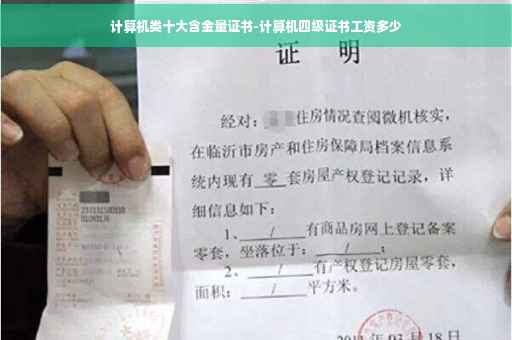 计算机类十大含金量证书-计算机四级证书工资多少
证 明
经对：住房情况查阅微机核实，
在临沂市房产和住房保障局档案信息系
统内现有 零 套房屋产权登记记录，详
细信息如下：
1、 / 有商品房网上登记备案
零套，坐落位于： / ；
2、 / 有产权登记房屋零套，
面积： / 平方米。
03月18日